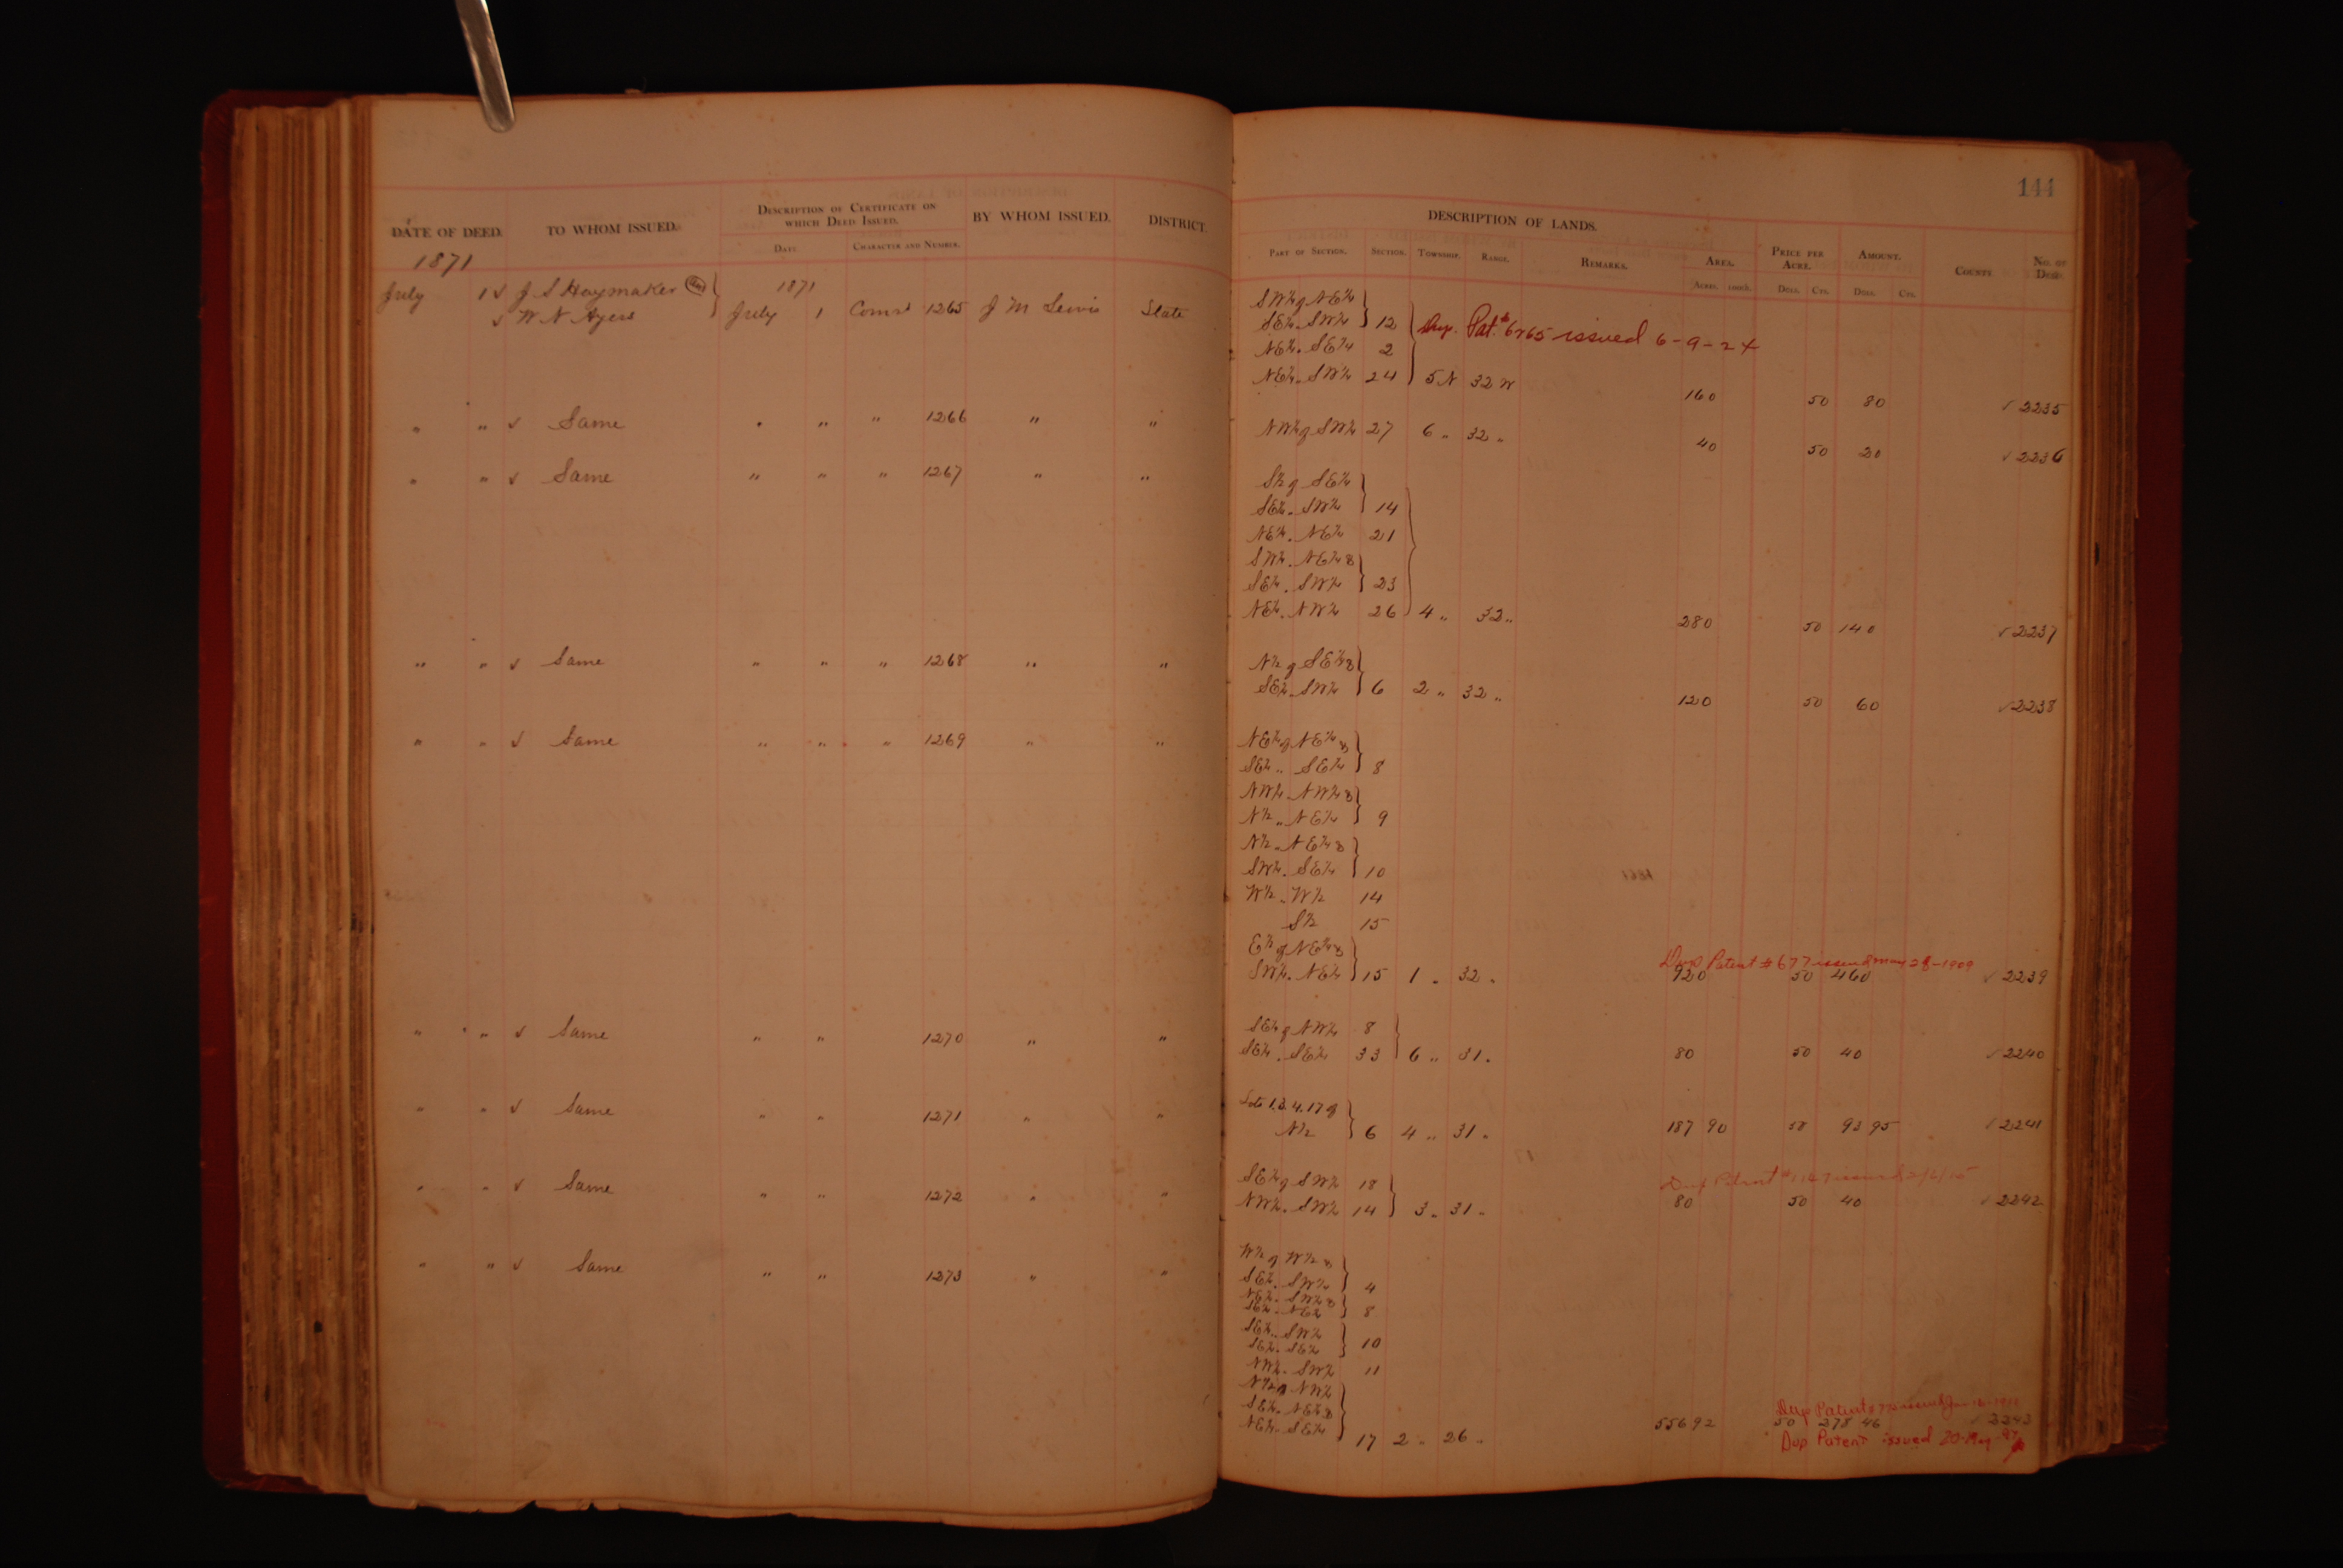 144
DATE OF DEED. TO WHOM ISSUED. DESCRIPTION OF CERTIFICATE ON WHICH DEED ISSUED. BY WHOM ISSUED. DISTRICT. DESCRIPTION OF LANDS.
DATE CHARACTER AND NUMBER. PART OF SECTION. SECTION. TOWNSHIP. RANGE. REMARKS. AREA. PRICE PER ACRE. AMOUNT. COUNTY No. OF DEED.
ACRES. DOLL. CTS. DOLL. CTS.
1871
July 1 √ J S Haymaker & 1871
√ W N Ayers July 1 Coms' 1265 J M Lewis State
SW¼ of NE¼
SE¼ " SW¼ 12 Dup. Pat. # 6765 issued 6-9-24
NE¼ " SE¼ 2
NE¼ " SW¼ 24 5 N 32 W 160 50 80 √ 2235
" " √ Same " " " 1266 " " NW¼ of SW¼ 27 6 " 32 " 40 50 20 √ 2236
" " √ Same " " " 1267 " " S½ of SE¼
SE¼ " SW¼ 14
NE¼ " NE¼ 21
SW¼ " NE¼ &
SE¼ " SW¼ 23
NE¼ " NW¼ 26 4 " 32 " 280 50 140 √ 2237
" " √ Same " " " 1268 " " N½ of SE¼ &
SE¼ " SW¼ 6 2 " 32 " 120 50 60 √ 2238
" " √ Same " " " 1269 " " NE¼ of NE¼ &
SE¼ " SE¼ 8
NW¼ " NW¼ &
N½ " NE¼ 9
N½ " NE¼ &
SW¼ " SE¼ 10
W½ " W½ 14
S½ 15
E½ of NE¼ & Dup Patent # 677 issued May 28-1909
SW¼ " NE¼ 15 1 " 32 " 920 50 460 √ 2239
" " √ Same " " 1270 " " SE¼ of NW¼ 8
SE¼ " SE¼ 33 6 " 31 " 80 50 40 √ 2240
" " √ Same " " 1271 " " Lots 1.3.4.17 of
N½ 6 4 " 31 " 187 90 50 93 95 √ 2241
" " √ Same " " 1272 " " SE¼ of SW¼ 18 Dup Patent issued
NW¼ " SW¼ 14 3 " 31 " 80 50 40 √ 2242
" " √ Same " " 1273 " " W½ of W½ &
SE¼ " SW¼ 4
NE¼ " SW¼ &
SE¼ " NE¼ 8
SE¼ " SW¼
SE¼ " SE¼ 10
NW¼ " SW¼ 11
N½ of NW¼
SE¼ " NE¼ & Dup Patent issued
NE¼ " SE¼ 17 2 " 26 " 556 92 50 278 46 √ 2243
Dup Patent issued 20-May